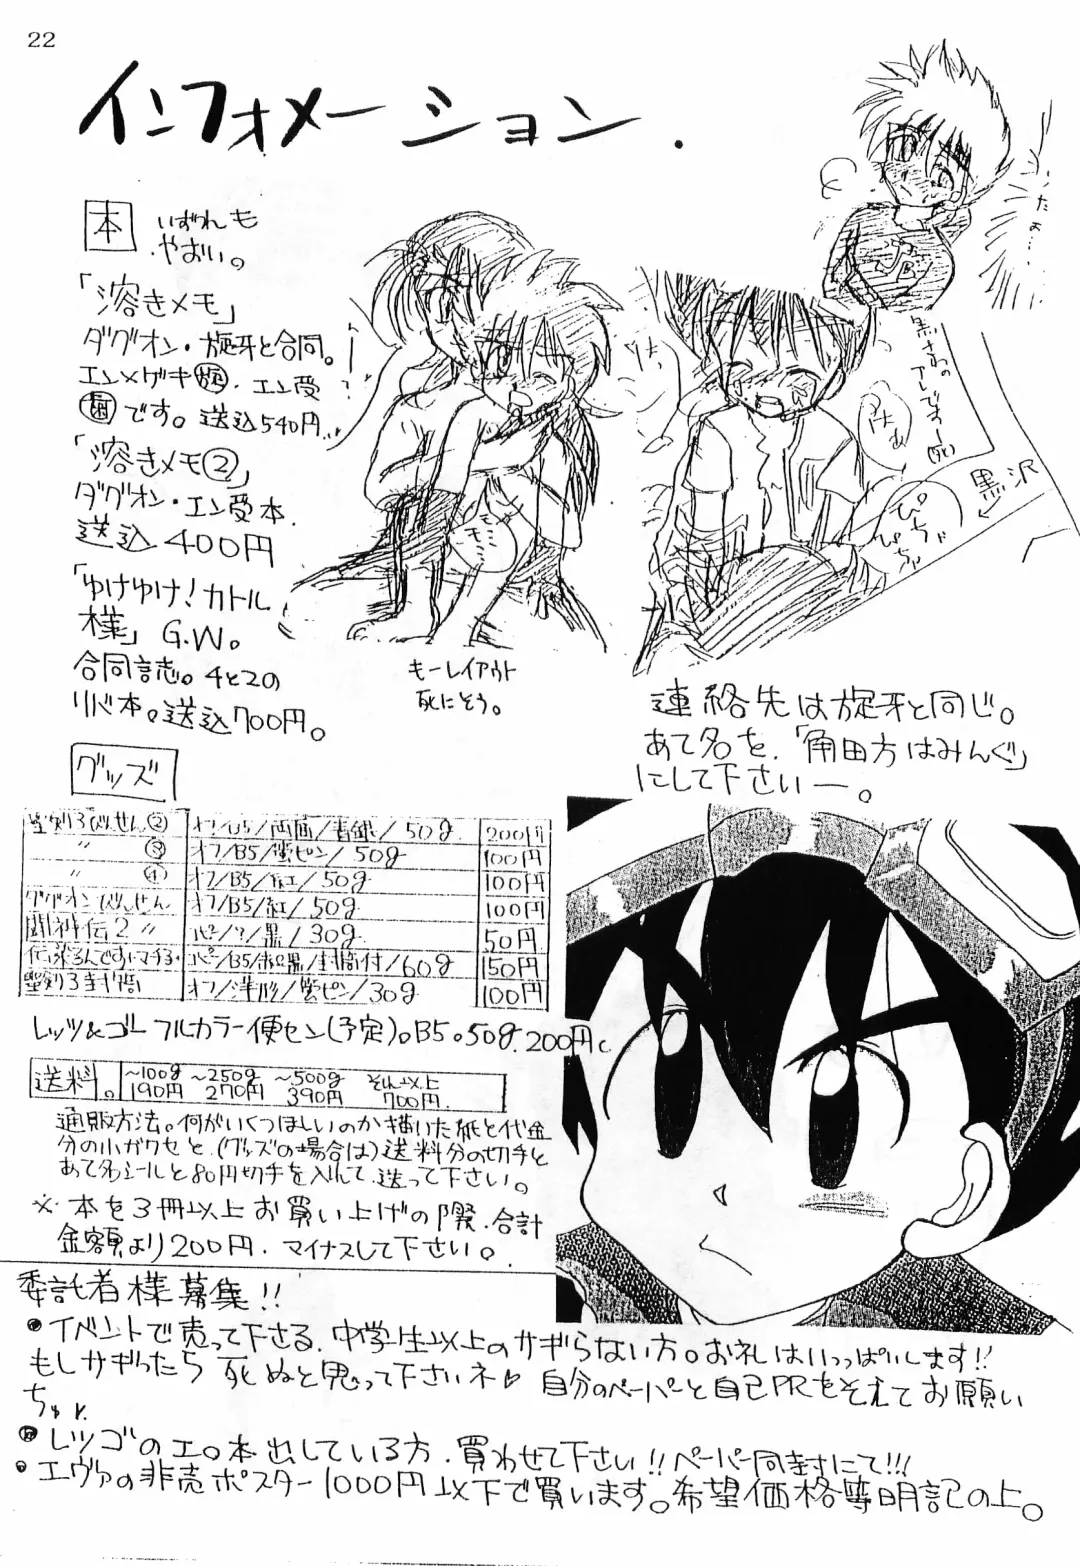 22
インフォメーション.
本 いずれも
やおい。
「溶きメモ」
ダグオン・旋牙と合同。
エン×ゲキ 旋. エン受
です。送込540円
「溶きメモ②」
ダグオン・エン受本.
送込400円
「ゆけゆけ!カトル
様」G.W。
合同誌。4と2の
リバ本。送込700円。
もーレイアウト
死にそう。
黒さわの
アレですー(死)
はぁ
ぴちゃ
ぴちゃ
黒沢
連絡先は旋牙と同じ。
あて名を、「角田方はみんぐ」
にして下さいー。
グッズ
聖刻3びんせん② オフ/B5/両面/青銀/50g. 200円
〃 ③ オフ/B5/蛍ピン/50g 100円
〃 ④ オフ/B5/紅/50g 100円
ダグオンびんせん オフ/B5/紅/50g 100円
闘神伝2 〃 コピー/?/黒/30g 50円
コピー/B5/赤黒/封筒付/60g 150円
聖刻3封筒 オフ/洋形/蛍ピン/30g 100円
レッツ&ゴー フルカラー便セン(予定)。B5。50g. 200円。
送料。 ~100g ~250g ~500g それ以上
190円 270円 390円 700円.
通販方法。何がいくつほしいのか描いた紙と代金
分の小ガワセと、(グッズの場合は)送料分の切手と
あて名シールと80円切手を入れて、送って下さい。
※本を3冊以上お買い上げの際、合計
金額より200円、マイナスして下さい。
委託者様募集!!
●イベントで売って下さる、中学生以上のサギらない方。お礼はいっぱいします!!
もしサギったら死ぬと思って下さいネ♡ 自分のペーパーと自己PRをそえてお願い
ちゅ。
●レツゴのエロ本出している方、買わせて下さい!!ペーパー同封にて!!!
●エヴァの非売ポスター1000円以下で買います。希望価格等明記の上。